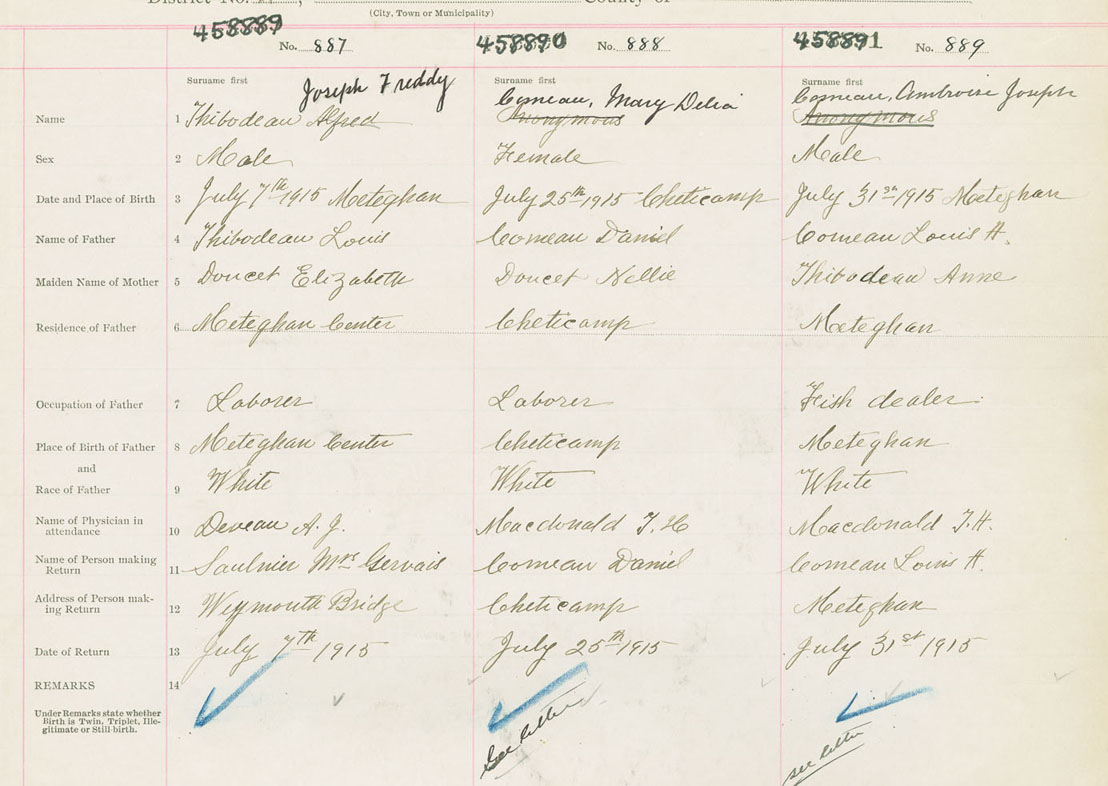 District No. County of
(City, Town or Municipality)
458889 No. 887 458890 No. 888 458891 No. 889
Surname first Surname first Surname first
Joseph Freddy Comeau, Mary Delia Comeau, Ambroise Joseph
Name 1 Thibodeau Alfred Anonymous Anonymous
Sex 2 Male Female Male
Date and Place of Birth 3 July 7th 1915 Meteghan July 25th 1915 Cheticamp July 31st 1915 Meteghan
Name of Father 4 Thibodeau Louis Comeau Daniel Comeau Louis A.
Maiden Name of Mother 5 Doucet Elizabeth Doucet Nellie Thibodeau Anne
Residence of Father 6 Meteghan Center Cheticamp Meteghan
Occupation of Father 7 Laborer Laborer Fish dealer
Place of Birth of Father 8 Meteghan Center Cheticamp Meteghan
and
Race of Father 9 White White White
Name of Physician in
attendance 10 Deveau A. J. Macdonald T. H Macdonald T. H.
Name of Person making
Return 11 Saulnier Mrs Gervais Comeau Daniel Comeau Louis A.
Address of Person mak-
ing Return 12 Weymouth Bridge Cheticamp Meteghan
Date of Return 13 July 7th 1915 July 25th 1915 July 31st 1915
REMARKS 14
Under Remarks state whether
Birth is Twin, Triplet, Ille-
gitimate or Still-birth.
See letter see letter